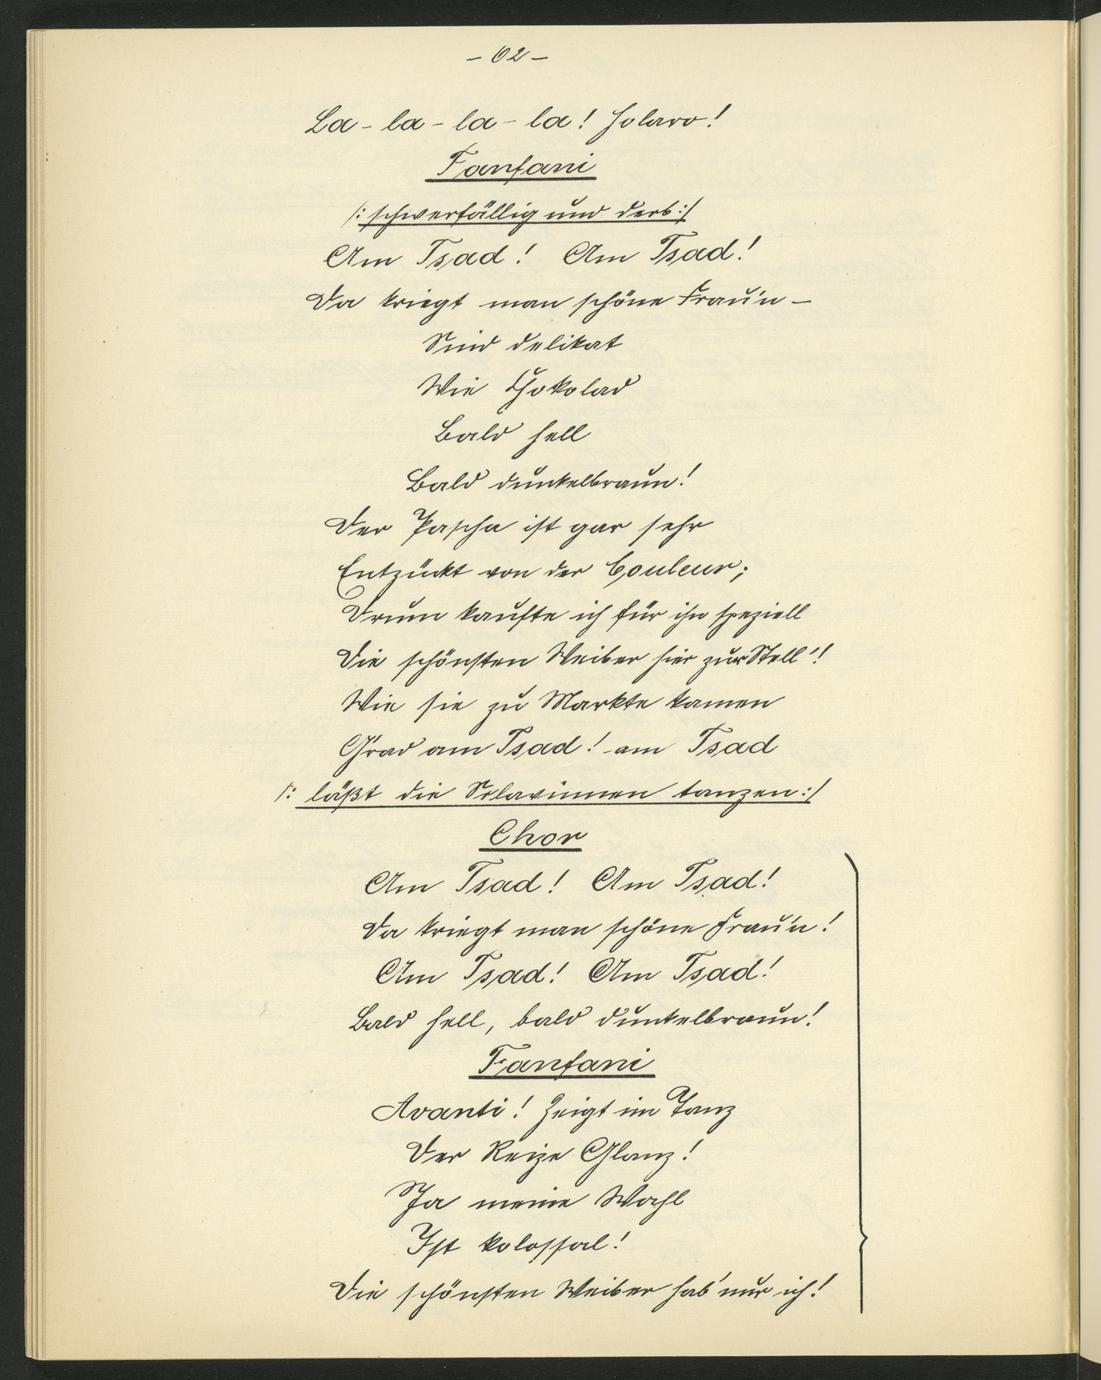 - 62 -
La - la - la - la! Holaro!
Fanfani
/: schwerfällig und derb :/
Am Tsad! Am Tsad!
Da kriegt man schöne Frau'n -
Sind delikat
Wie Schokolad
Bald hell
Bald dunkelbraun!
Der Pascha ist gar sehr
Entzückt von der Couleur;
Drum kaufte ich für ihn speziell
Die schönsten Weiber hier zur Stell'!
Wie sie zu Markte kamen
Grad am Tsad! am Tsad
/: läßt die Sklavinnen tanzen :/
Chor
Am Tsad! Am Tsad!
Da kriegt man schöne Frau'n!
Am Tsad! Am Tsad!
Bald hell, bald dunkelbraun!
Fanfani
Avanti! Zeigt im Tanz
Der Reize Glanz!
Ja meine Wahl
Ist kolossal!
Die schönsten Weiber hab' nur ich!